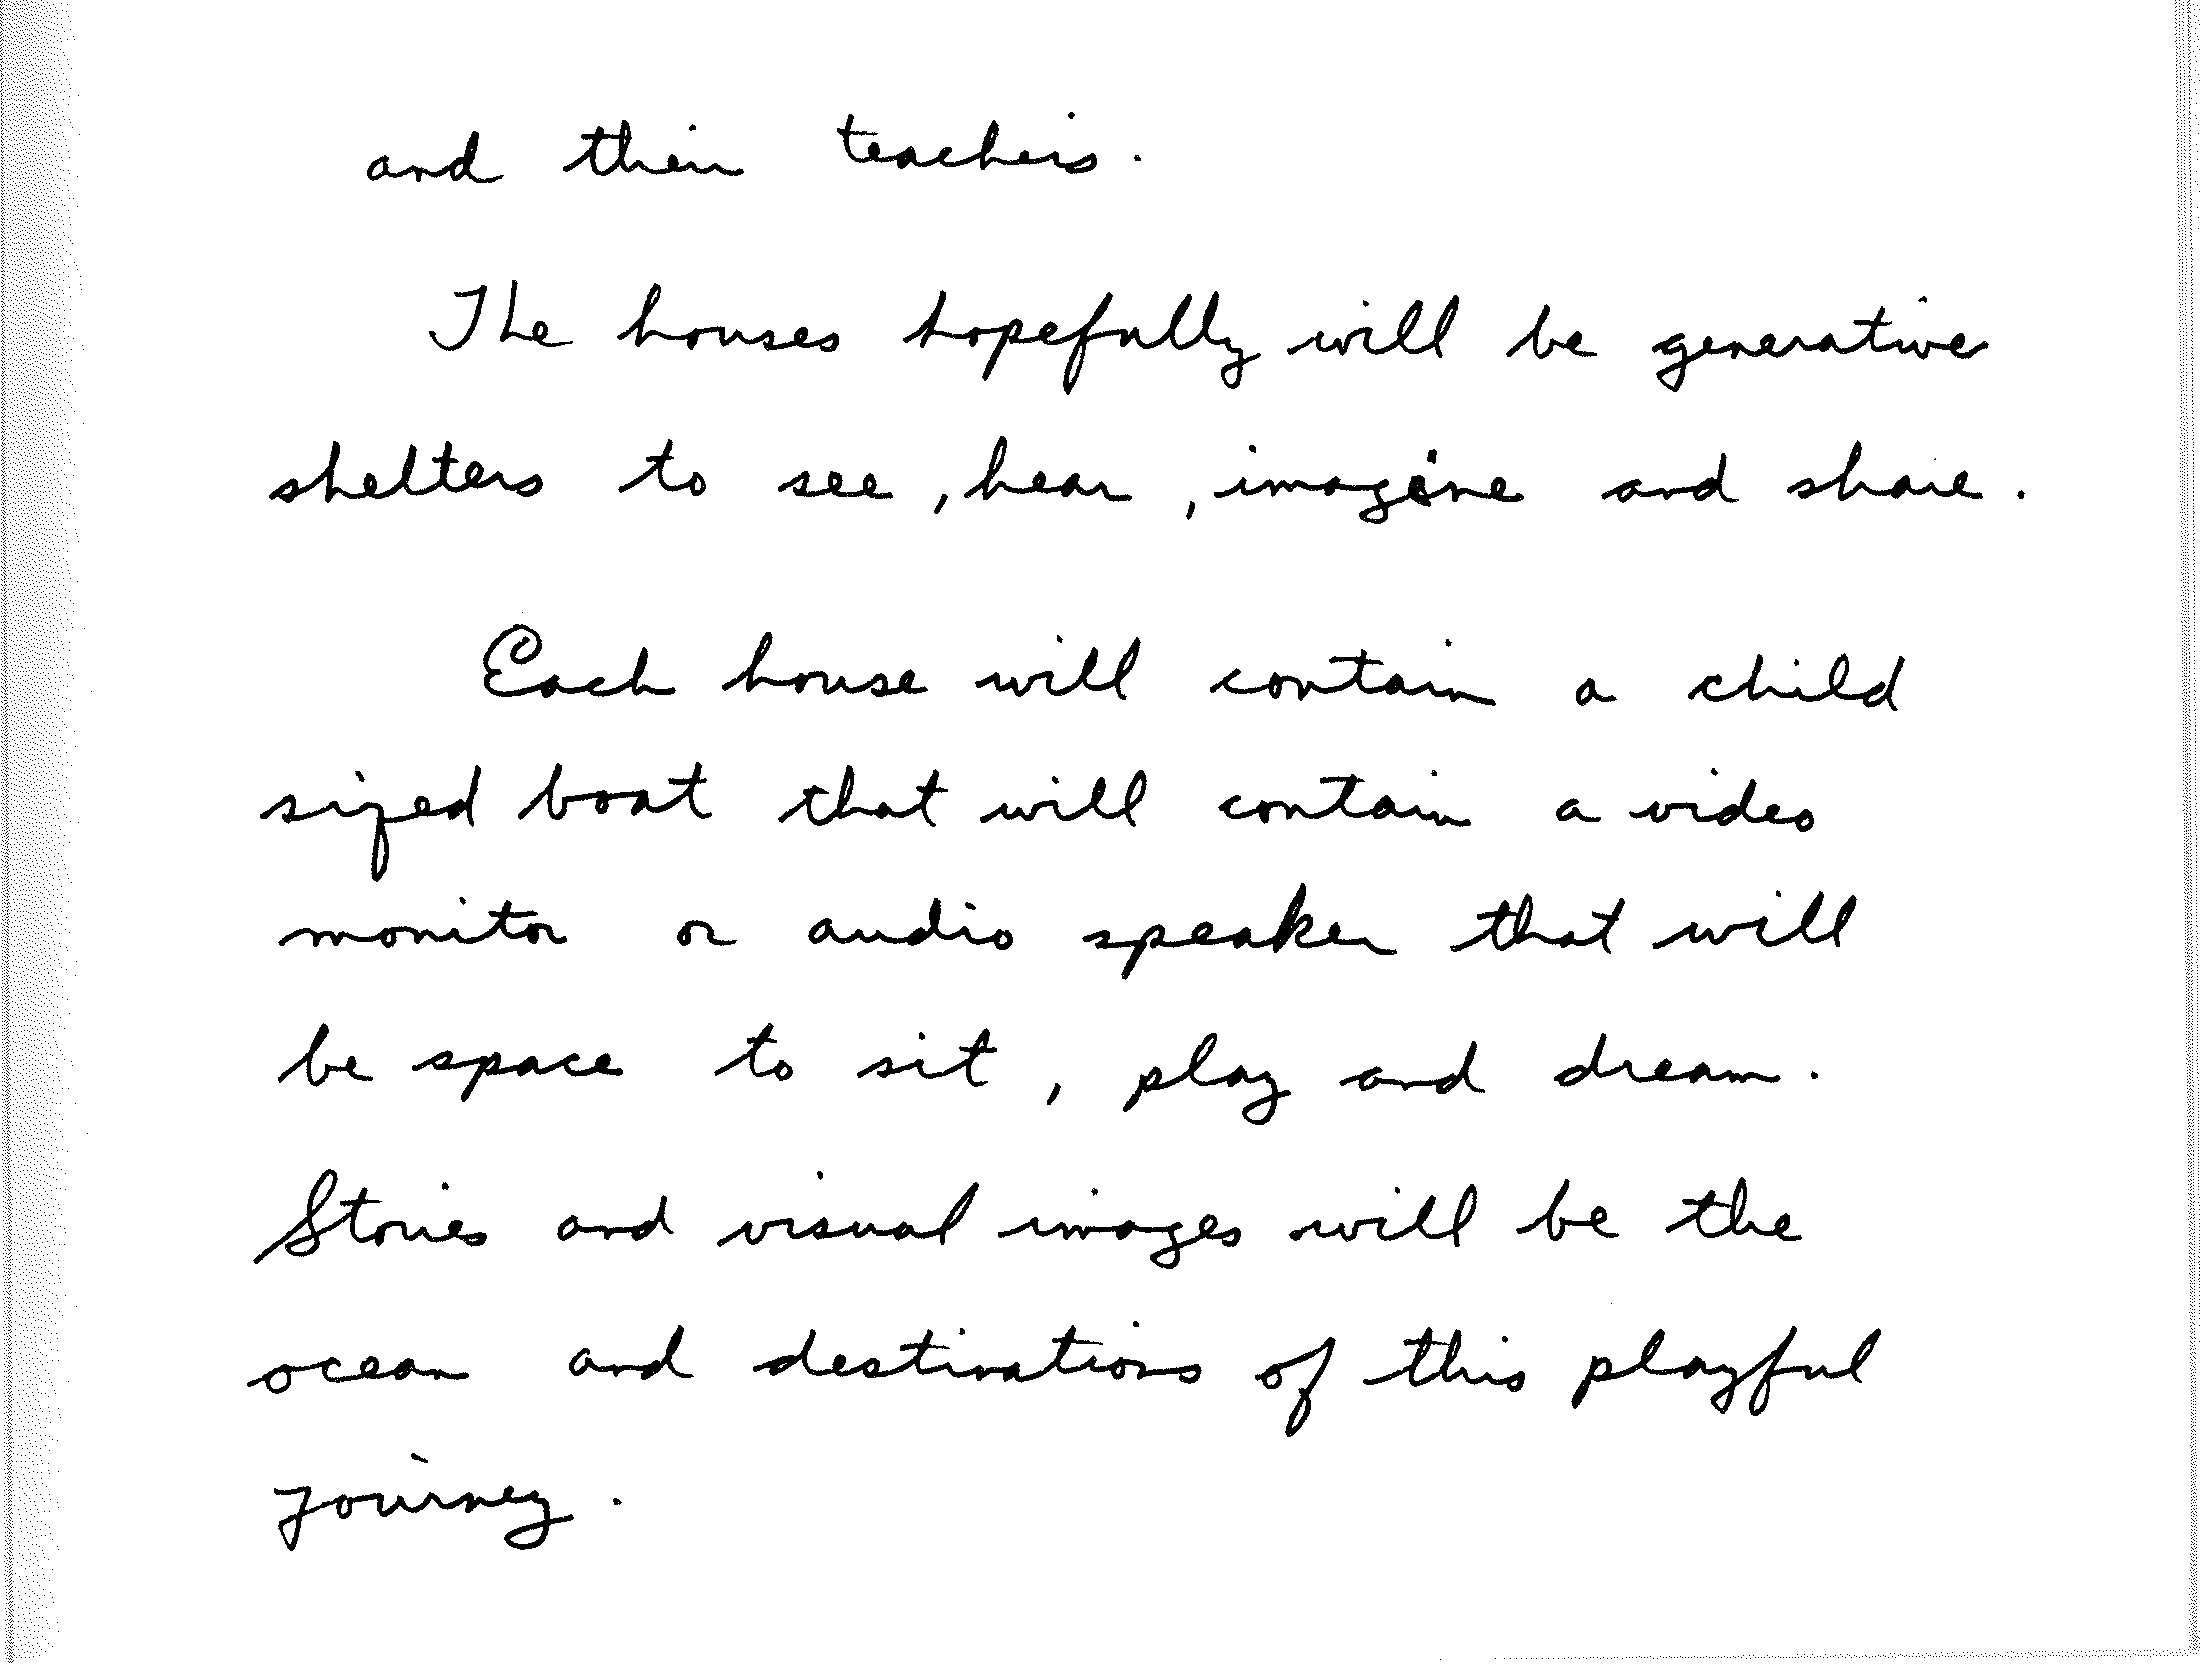 and their teachers.
The houses hopefully will be generative
shelters to see, hear, imagine and share.
Each house will contain a child
sized boat that will contain a video
monitor or audio speaker that will
be space to sit, play and dream.
Stories and visual images will be the
ocean and destinations of this playful
journey.